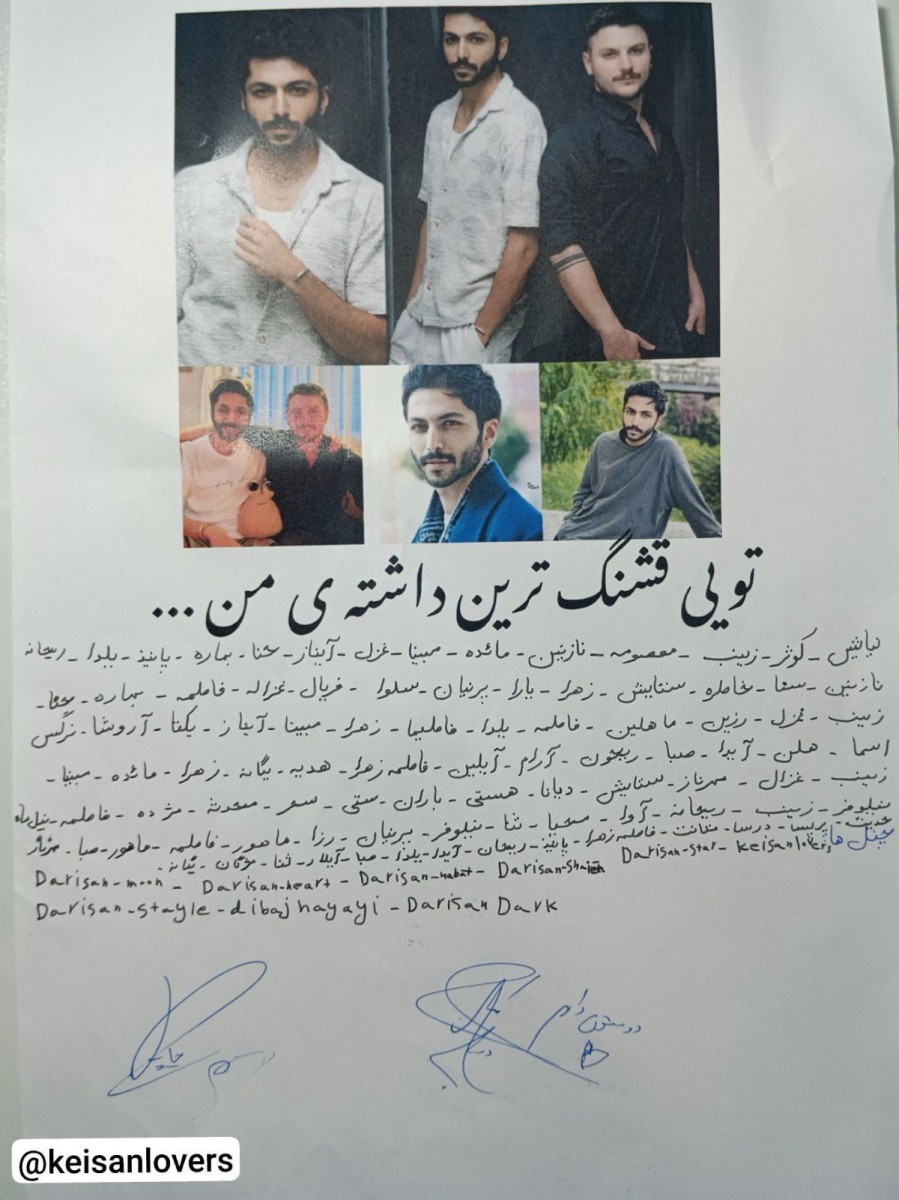 تویی قشنگ ترین داشته ی من ...
نیایش - کوثر - زینب - معصومه - نازنین - مائده - مبینا - غزل - آیناز - حنا - بهاره - پانیذ - یلدا - ریحانه
نازنین - سما - خاطره - ستایش - زهرا - یارا - پرنیان - سلوا - فریال - غزاله - فاطمه - بهاره -
زینب - غزل - رزین - ماهلین - فاطمه - یلدا - فاطیما - زهرا - مبینا - آیناز - یکتا - آروشا - نرگس
اسما - هلن - آیدا - صبا - ریحون - آرام - آیلین - فاطمه زهرا - هدیه - یگانه - زهرا - مائده - مبینا -
زینب - غزال - مهرناز - ستایش - دیانا - هستی - باران - ستی - سحر - محدثه - مژده - فاطمه -
نیلوفر - زینب - ریحانه - آوا - محیا - ثنا - نیلوفر - پرنیان - رزا - ماهور - فاطمه - ماهور - صبا -
حدیث - پریسا - درسا - - فاطمه زهرا - پانیذ - ریحان - آیدا - یلدا - صبا - آیلار - ثنا - مژگان -
چنل ها:
Darisan-moon - Darisan-heart - Darisan-nabat - Darisan-Shaieh Darisan-star - keisanlovers
Darisan-stayle - dibajhayayi - Darisan Dark
دوستون دارم
@keisanlovers